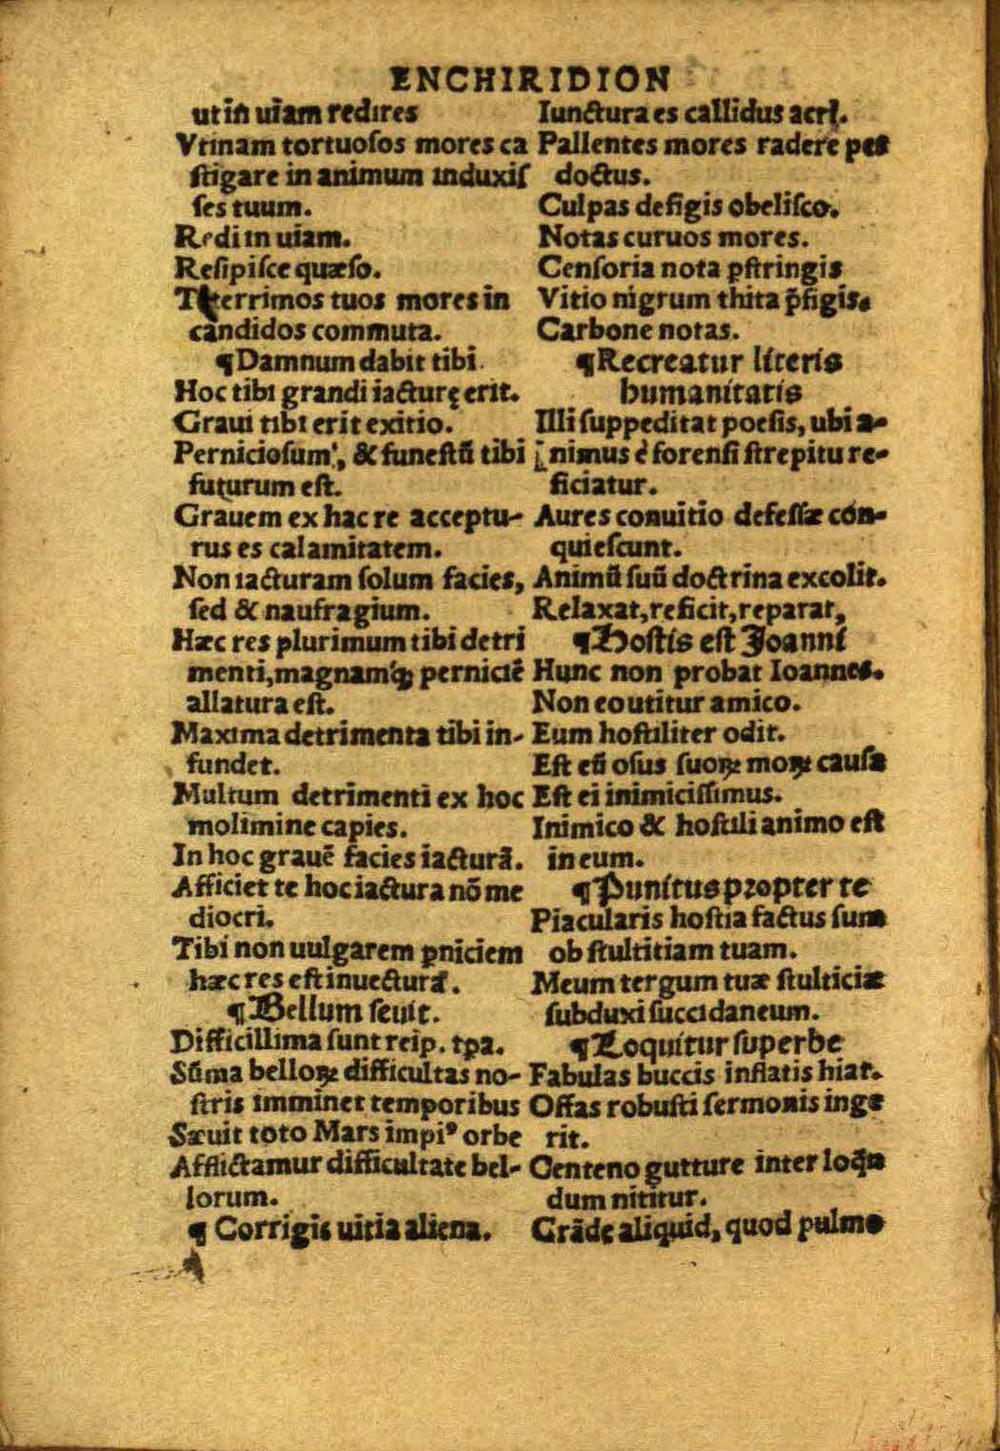 ENCHIRIDION
ut in uiam redires
Vtinam tortuoſos mores ca
ſtigare in animum induxiſ
ſes tuum.
Redi in uiam.
Reſipiſce quæſo.
Teterrimos tuos mores in
candidos commuta.
¶Damnum dabit tibi
Hoc tibi grandi iacturę erit.
Graui tibi erit exitio.
Pernicioſum', & funeſtū tibi
futurum eſt.
Grauem ex hac re acceptu-
rus es calamitatem.
Non iacturam ſolum facies,
ſed & naufragium.
Hæc res plurimum tibi detri
menti, magnamꝗ perniciē
allatura eſt.
Maxima detrimenta tibi in-
fundet.
Multum detrimenti ex hoc
molimine capies.
In hoc grauē facies iacturā.
Afficiet te hoc iactura nō me
diocri.
Tibi non uulgarem ꝑniciem
hæc res eſt inuectura.
¶Bellum ſeuit.
Difficillima ſunt reip. tpa.
Sūma belloꝝ difficultas no-
ſtris imminet temporibus
Sæuit toto Mars impiꝰ orbe
Afflictamur difficultate bel-
lorum.
¶ Corrigis uitia aliena.
Iunctura es callidus acri.
Pallentes mores radere pes
doctus.
Culpas defigis obeliſco.
Notas curuos mores.
Cenſoria nota pſtringis
Vitio nigrum thita p̄figis.
Carbone notas.
¶Recreatur literis
humanitatis
Illi ſuppeditat poeſis, ubi a-
nimus é forenſi ſtrepitu re-
ficiatur.
Aures conuitio defeſſæ con-
quieſcunt.
Animū ſuū doctrina excolit.
Relaxat, reficit, reparat,
¶Hoſtis eſt Joanni
Hunc non probat Ioannes.
Non eo utitur amico.
Eum hoſtiliter odit.
Eſt eū oſus ſuoꝝ moꝝ cauſa
Eſt ei inimiciſſimus.
Inimico & hoſtili animo eſt
in eum.
¶Punitus propter te
Piacularis hoſtia factus ſum
ob ſtultitiam tuam.
Meum tergum tuæ ſtulticiæ
ſubduxi ſuccidaneum.
¶Loquitur ſuperbe
Fabulas buccis inflatis hiat.
Offas robuſti ſermonis inge
rit.
Centeno gutture inter loq̄n
dum nititur.
Grāde aliquid, quod pulmo